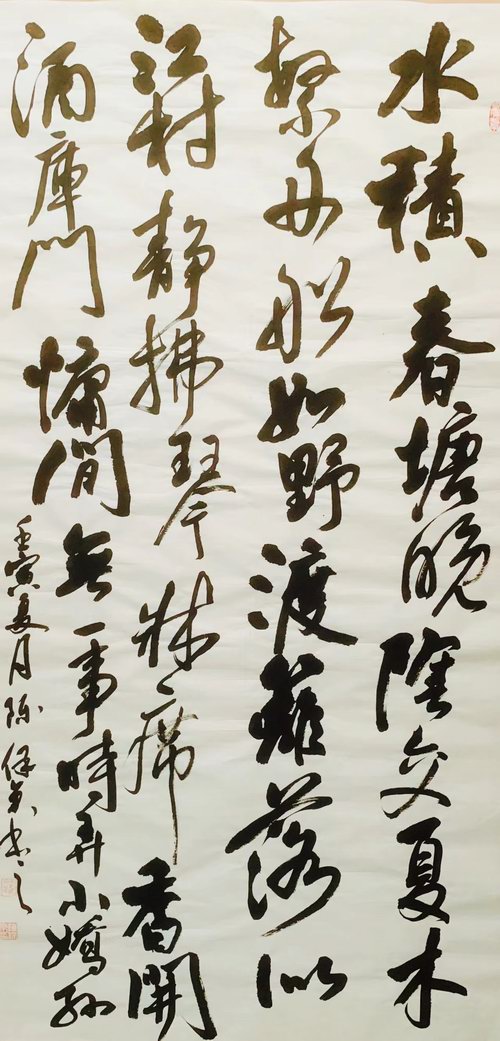 水積春塘晚陰交夏木
繁舟船如野渡籬落似
江村静拂琴牀席香開
酒庫門慵閒無一事時弄小嬌孫
壬寅夏月陈书之